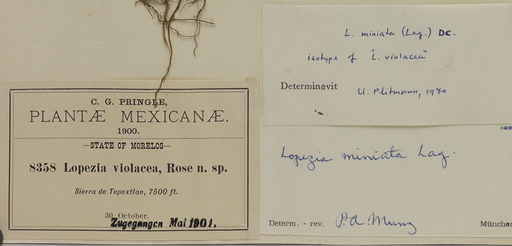 C. G. PRINGLE,
PLANTÆ MEXICANÆ.
1900.
—STATE OF MORELOS—
8358 Lopezia violacea, Rose n. sp.
Sierra de Tepoxtlan, 7500 ft.
30 October.
Zugegangen Mai 1901.
L. miniata (Lag.) DC.
isotype of "L. violacea"
Determinavit
U. Plitmann, 1970
Lopezia miniata Lag.
Determ. - rev. P. A. Munz
Münche